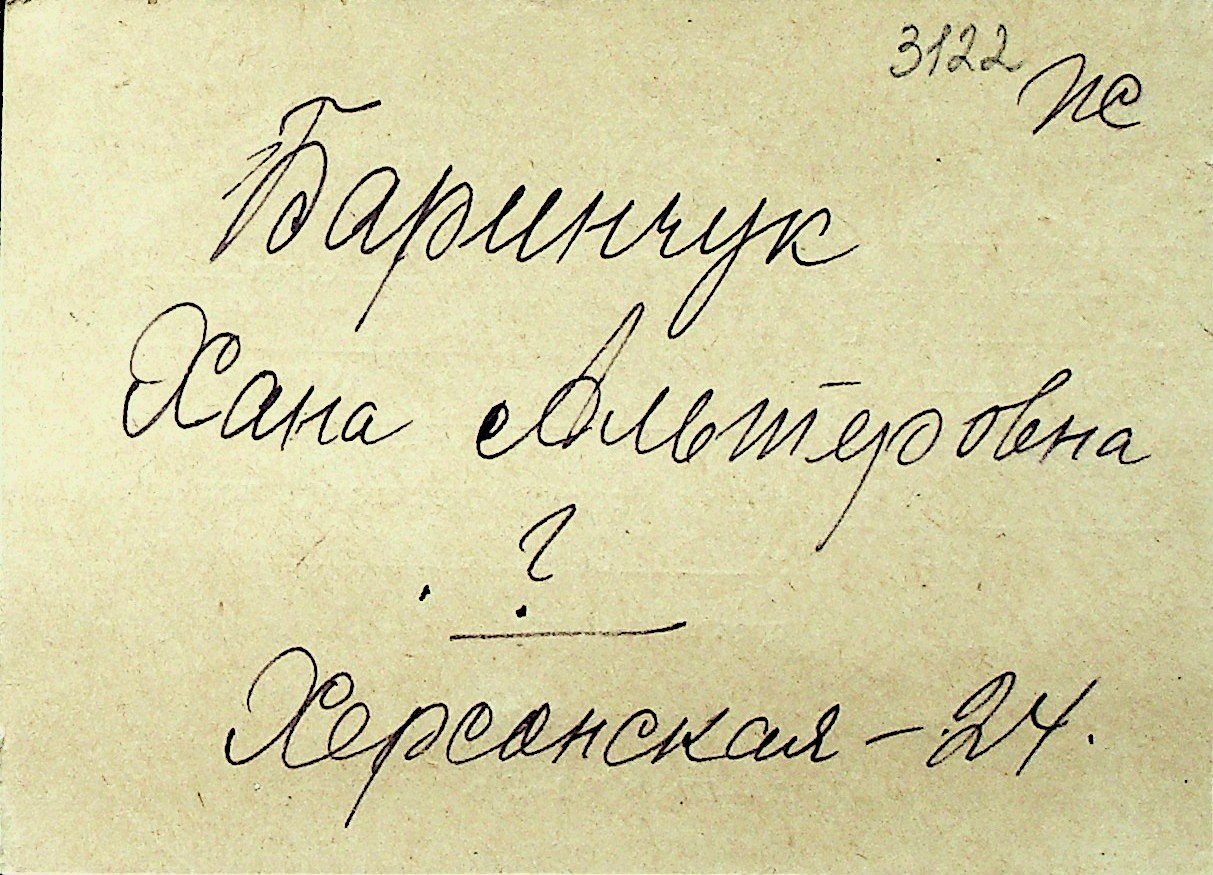 3122 ПС
Баринчук
Хана Альтеровна
?
Херсонская – 24.